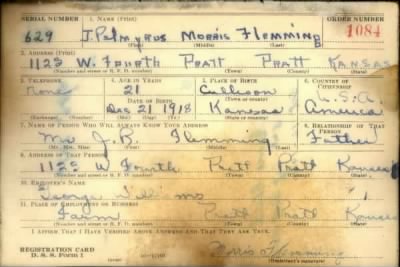 SERIAL NUMBER 1. NAME (Print) ORDER NUMBER
629 J. Palmyrus Morris Flemming 1084
(First) (Middle) (Last)
2. ADDRESS (Print)
1123 W. Fourth Pratt Pratt Kansas
(Number and street or R. F. D. number) (Town) (County) (State)
3. TELEPHONE 4. AGE IN YEARS 5. PLACE OF BIRTH 6. COUNTRY OF CITIZENSHIP
None 21 Cullison U.S.A.
DATE OF BIRTH (Town or county)
Dec 21 1918 Kansas America
(Exchange) (Number) (Mo.) (Day) (Yr.) (State or country)
7. NAME OF PERSON WHO WILL ALWAYS KNOW YOUR ADDRESS 8. RELATIONSHIP OF THAT PERSON
J. B. Flemming Father
(Mr., Mrs., Miss) (First) (Middle) (Last)
9. ADDRESS OF THAT PERSON
1123 W Fourth Pratt Pratt Kansas
(Number and street or R. F. D. number) (Town) (County) (State)
10. EMPLOYER'S NAME
George
11. PLACE OF EMPLOYMENT OR BUSINESS
Farm Pratt Pratt Kansas
(Number and street or R. F. D. number) (Town) (County) (State)
I AFFIRM THAT I HAVE VERIFIED ABOVE ANSWERS AND THAT THEY ARE TRUE.
REGISTRATION CARD
D. S. S. Form 1 Morris Flemming
(Registrant's signature)